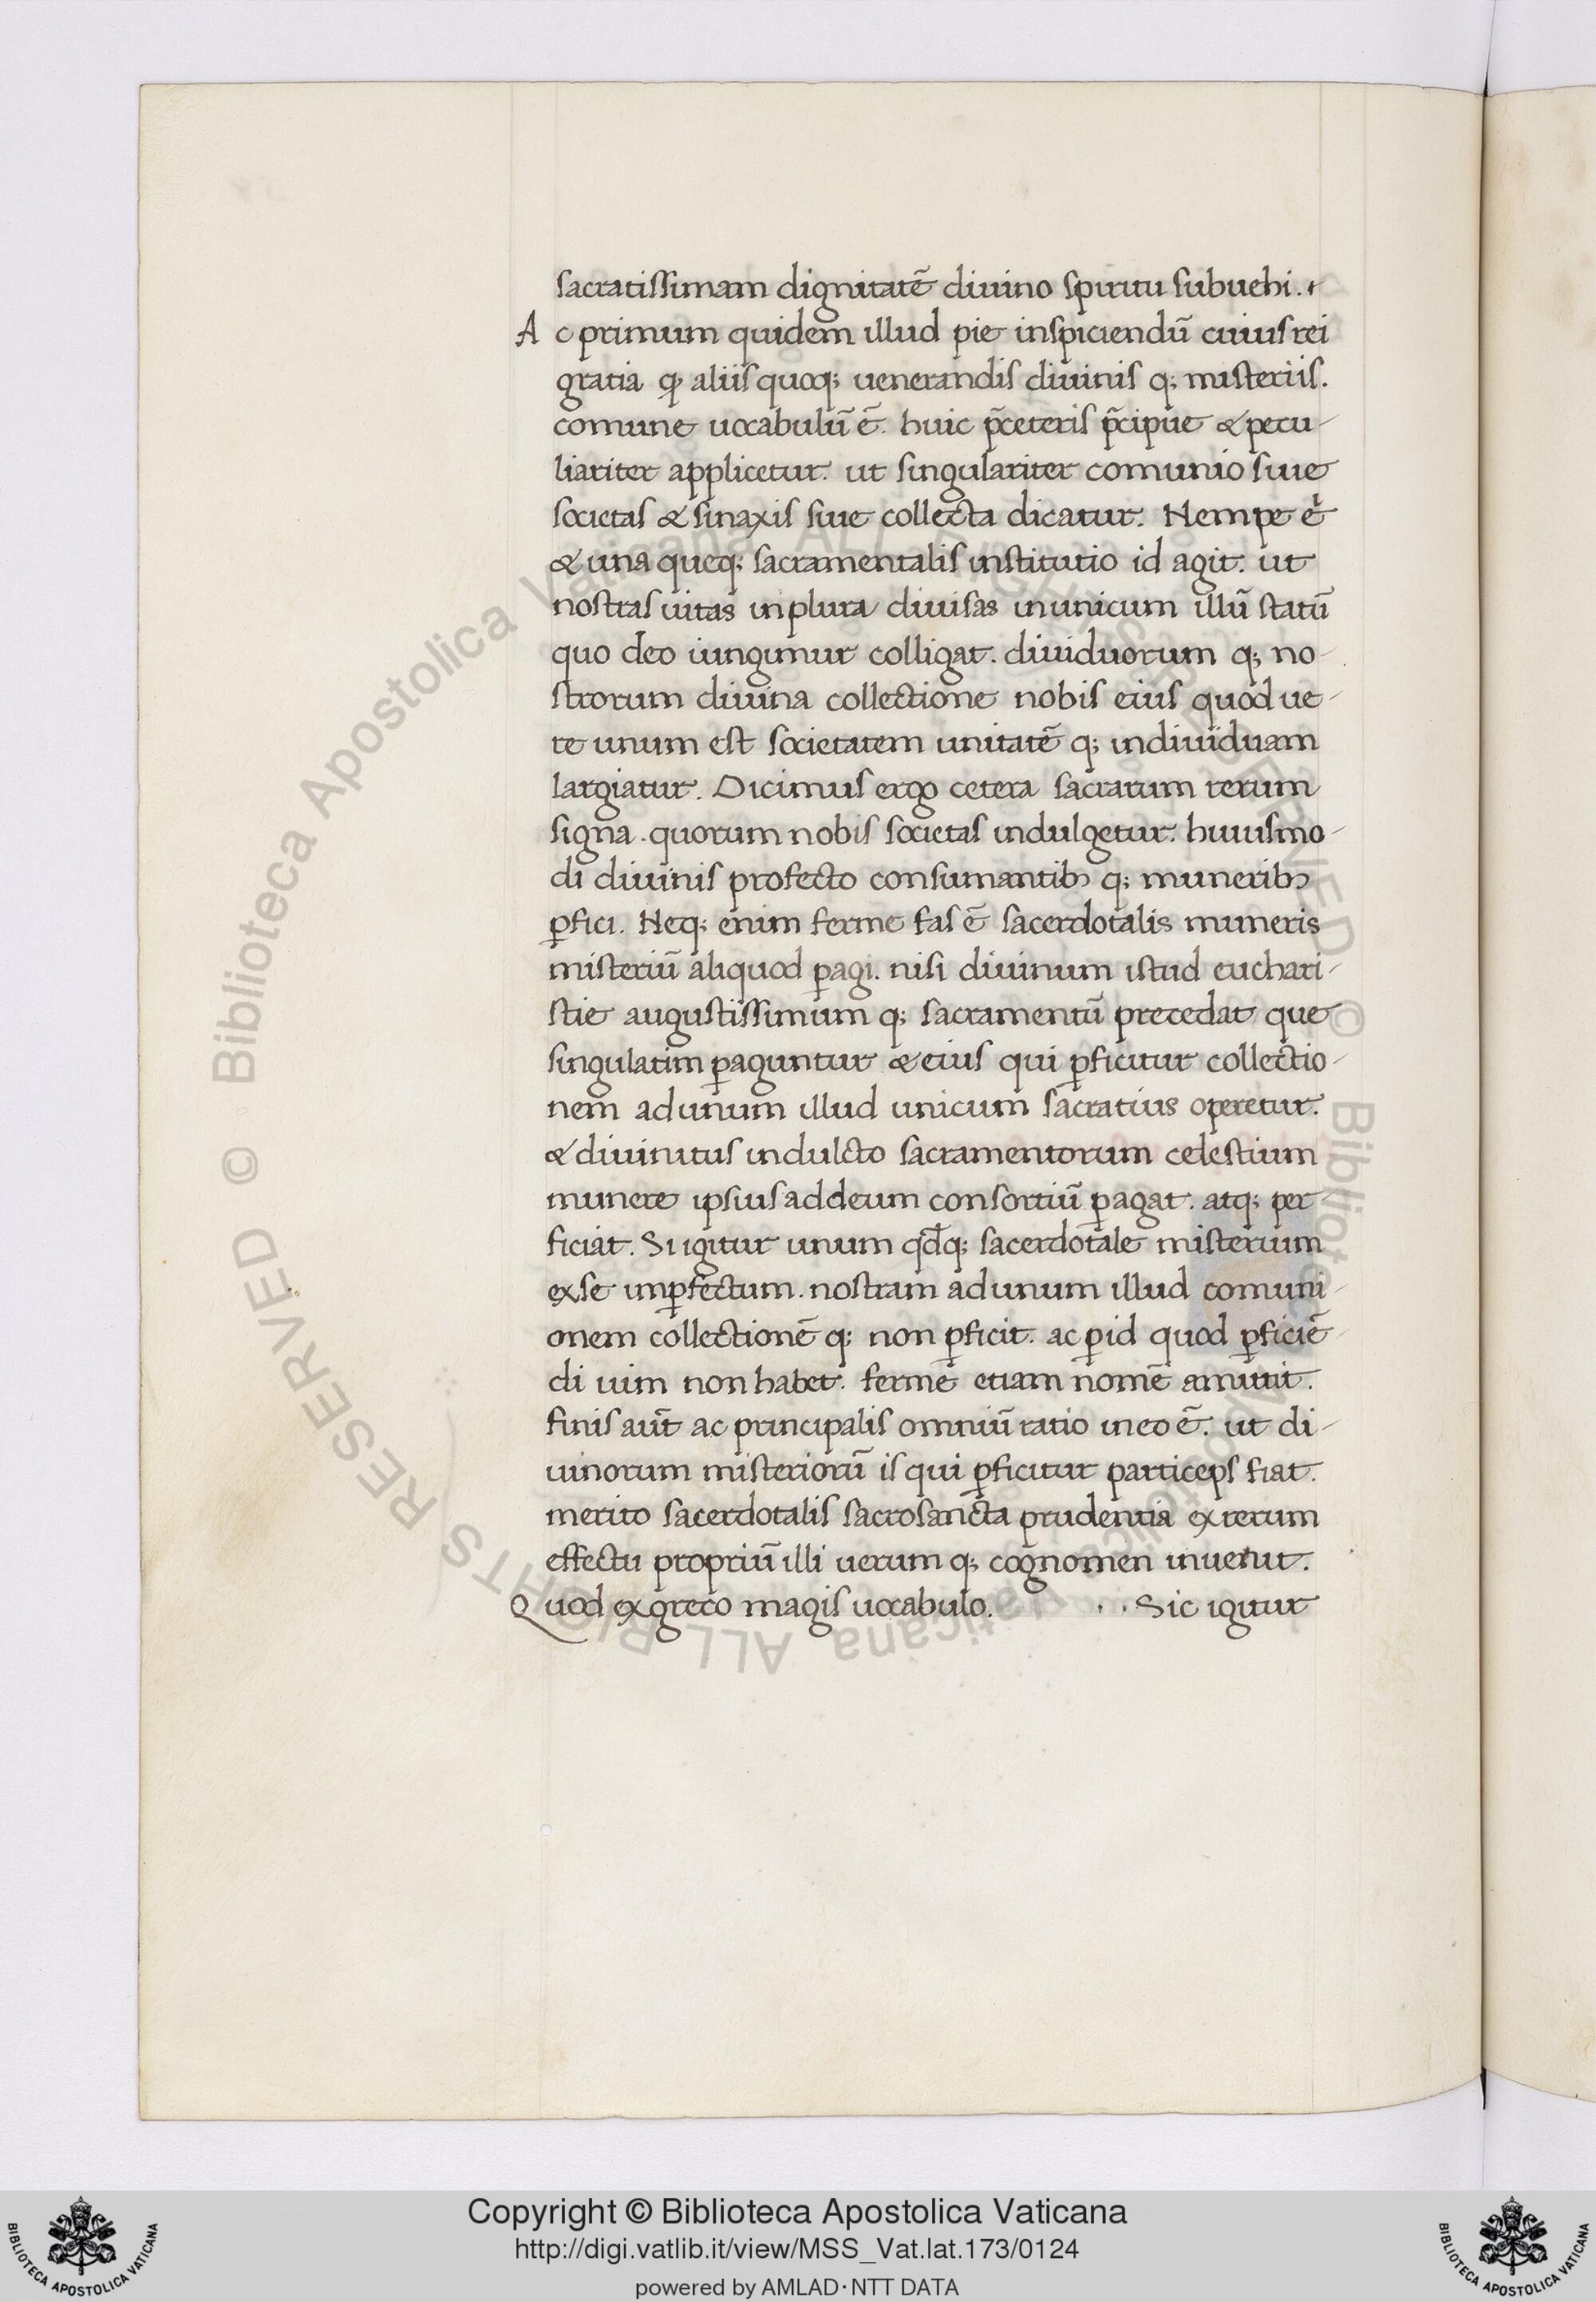 sacratissimam dignitatē diuino spiritu subuehi.
Ac primum quidem illud pie inspiciendū cuius rei
gratia ꝙ aliis quoq; uenerandis diuinis q; misteriis.
comune uocabulū ē. huic p̄ceteris p̄cipue & pecu-
liariter applicetur. ut singulariter comunio siue
societas & sinaxis siue collecta dicatur. Nempe ē
& una queq; sacramentalis institutio id agit. ut
nostras uitas in plura diuisas in unicum illū statū
quo deo iungimur colligat. diuiduorum q; no-
strorum diuina collectione nobis eius quod ue-
re unum est societatem unitatē q; indiuiduam
largiatur. Dicimus ergo cetera sacrarum rerum
signa. quorum nobis societas indulgetur. huiusmo-
di diuinis profecto consumantibꝫ q; muneribꝫ
ꝑfici. Neq; enim ferme fas ē sacerdotalis muneris
misteriū aliquod ꝑagi. nisi diuinum istud euchari-
stie augustissimum q; sacramentū precedat que
singulatim ꝑaguntur & eius qui ꝑficitur collectio-
nem ad unum illud unicum sacratius operetur.
& diuinitus indulcto sacramentorum celestium
munere ipsius ad deum consortiū ꝑagat. atq; per-
ficiat. Si igitur unum qd̄q; sacerdotale misterium
ex se imꝑfectum. nostram ad unum illud comuni-
onem collectionē q; non ꝑficit. ac ꝑ id quod ꝑficiē-
di uim non habet. ferme etiam nomē amittit.
finis aūt ac principalis omniū ratio in eo ē. ut di-
uinorum misteriorū is qui ꝑficitur particeps fiat.
merito sacerdotalis sacrosancta prudentia ex rerum
effectu propriū illi uerum q; cognomen inuenit.
Quod ex greco magis uocabulo. . . Sic igitur
© Biblioteca Apostolica Vaticana ALL RIGHTS RESERVED © Biblioteca Apostolica Vaticana ALL RIGHTS RESERVED
Copyright © Biblioteca Apostolica Vaticana
http://digi.vatlib.it/view/MSS_Vat.lat.173/0124
powered by AMLAD·NTT DATA
BIBLIOTECA APOSTOLICA VATICANA
BIBLIOTECA APOSTOLICA VATICANA